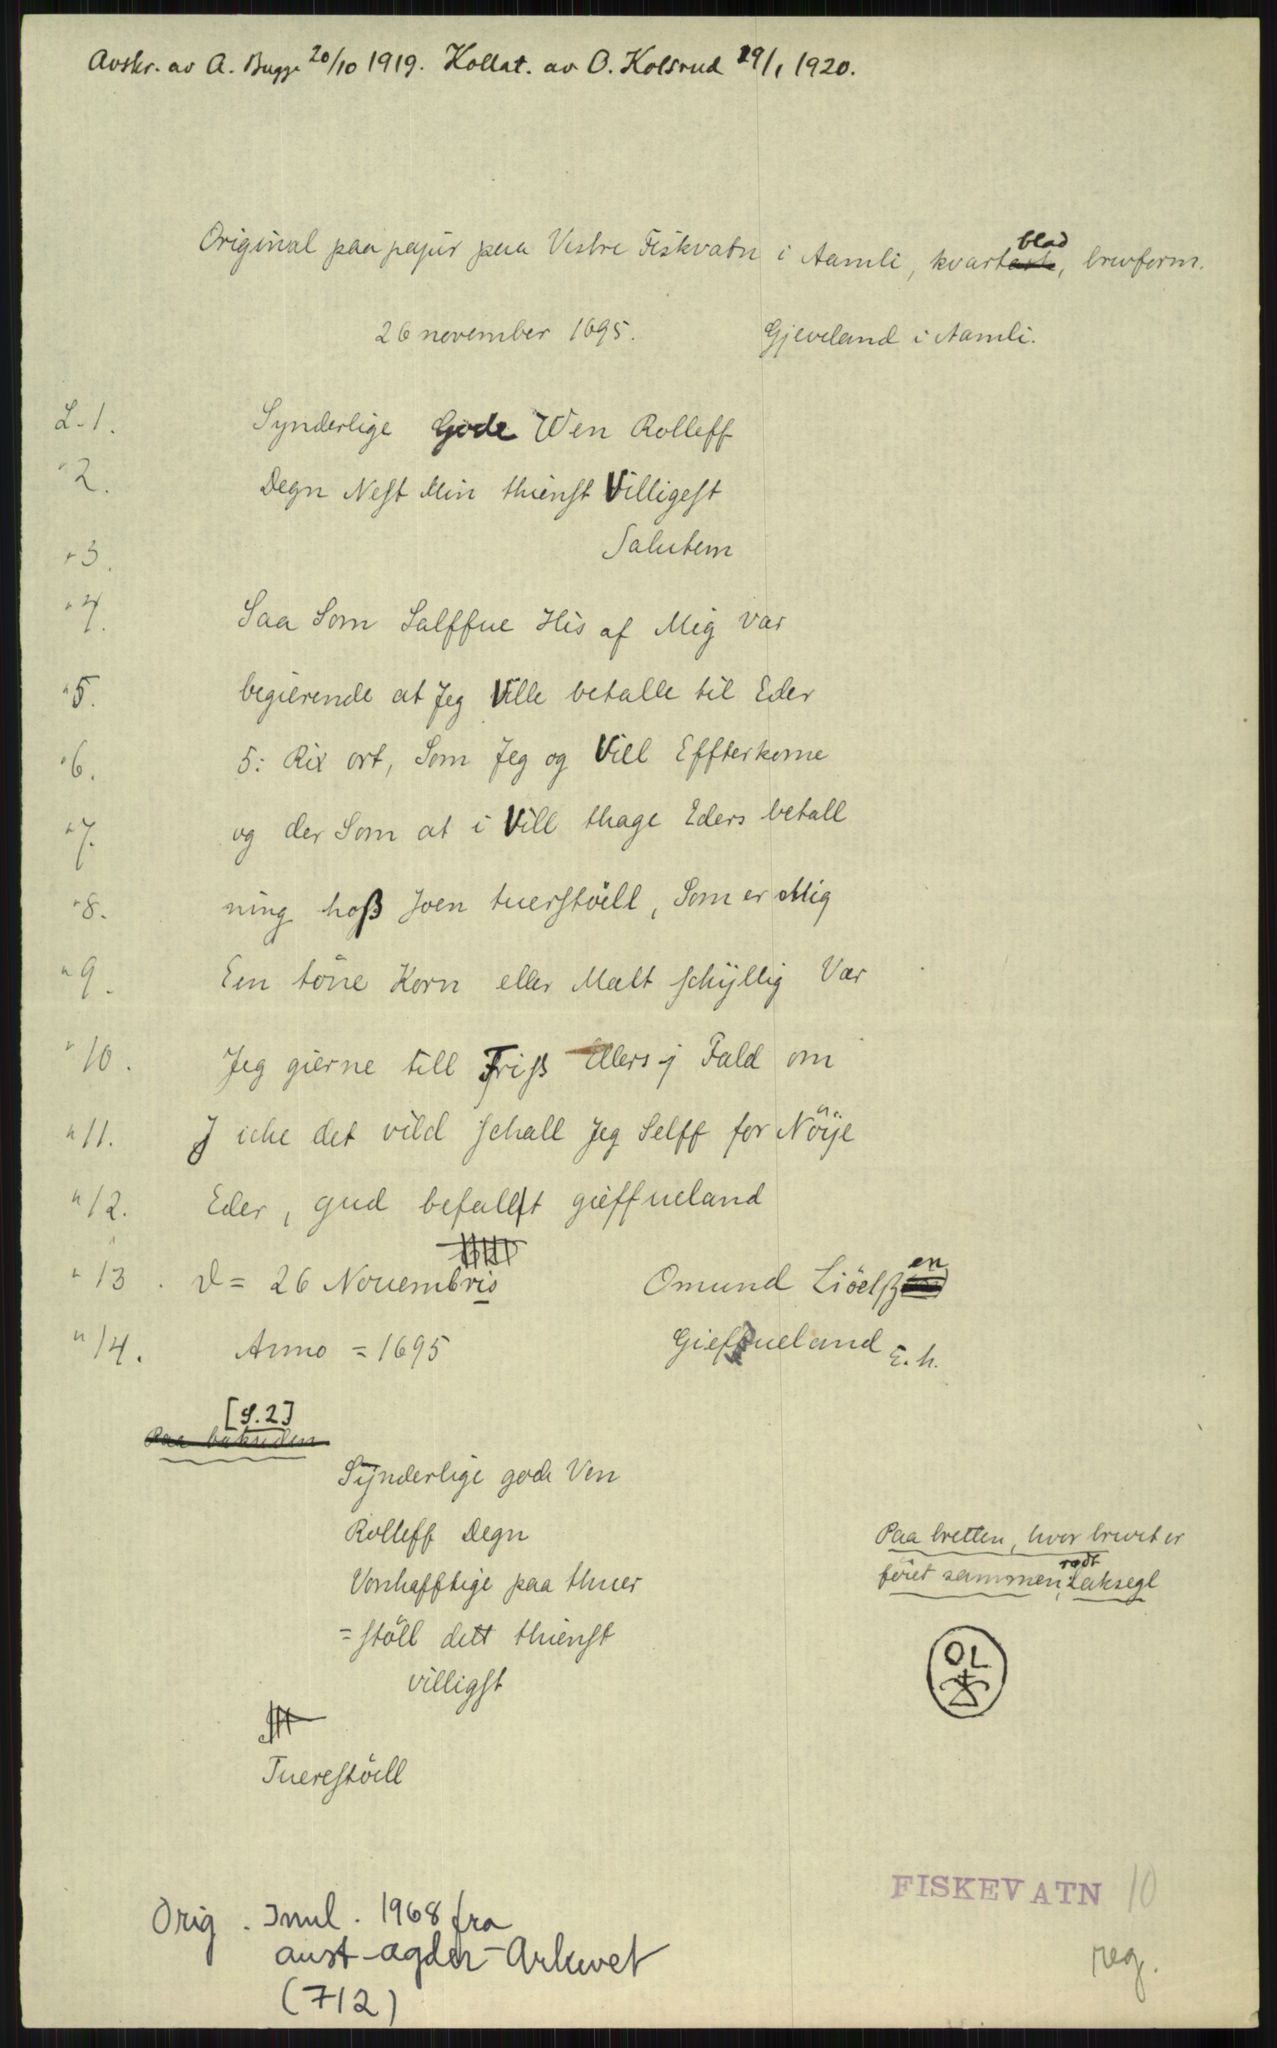 Avskr. av A. Bugge 20/10 1919. Kollat. av O. Kolsrud 29/1 1920.
Original paa papir paa Vestre Fiskvatn i Aamli, kvartblad, brevform.
26 november 1695. Gjeveland i Aamli.
L. 1. Synderlige Gode Wen Rolleff
" 2. Degn Nest Min thienst Villigest
" 3. Salutem
" 4. Saa Som Salffue His af Mig var
" 5. begierende at Jeg Ville betalle til Eder
" 6. 5: Rix ort, Som Jeg og Vill Effterkome
" 7. og der Som at i Vill thage Eders betall
" 8. ning hoß Joen tuerstöell, Som er Mig
" 9. Een töne Korn eller Malt schÿllig Var
" 10. Jeg gierne till Friß Ellers j Fald om
" 11. J iche det vild schall Jeg Selff for Nöÿe
" 12. Eder, gud befallet gieffueland
" 13. d = 26 Nouembris Omund Liöelßen
" 14. Anno = 1695 Gieffueland E. h.
[S. 2]
Paa baksiden
Sÿnderlige gode Ven
Rolleff Degn
Vonhafftige paa thuer
= stöll dett thienst
villigst
Tuerestöell
Paa bretten, hvor brevet er
föiet sammen, rødt laksegl
OL
FISKEVATN 10
reg.
Orig. Innl. 1968 fra
aust-agder-Arkivet
(712)